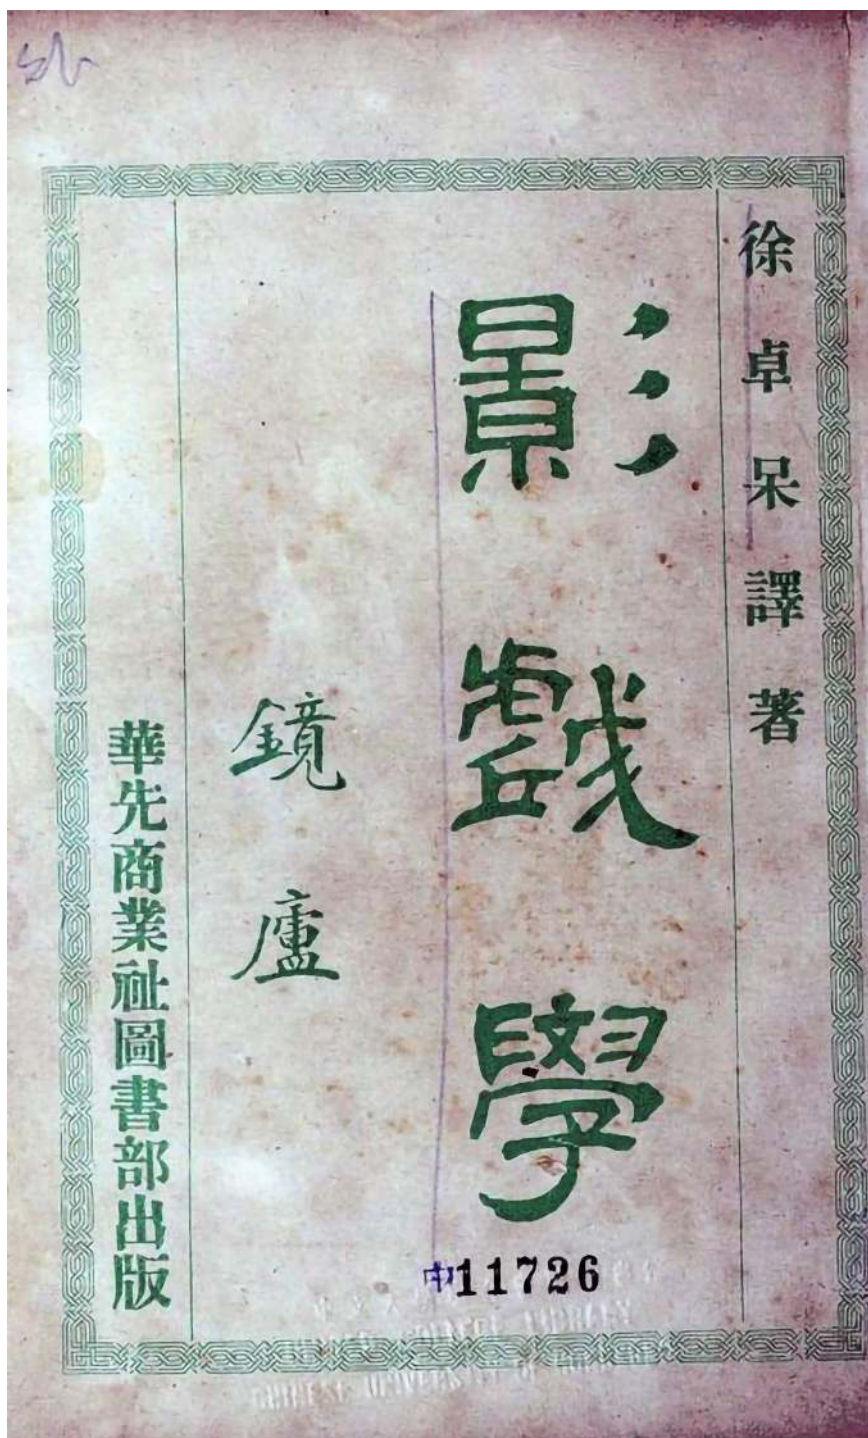 徐卓呆譯著
影戲學
鏡廬
華先商業社圖書部出版
中11726